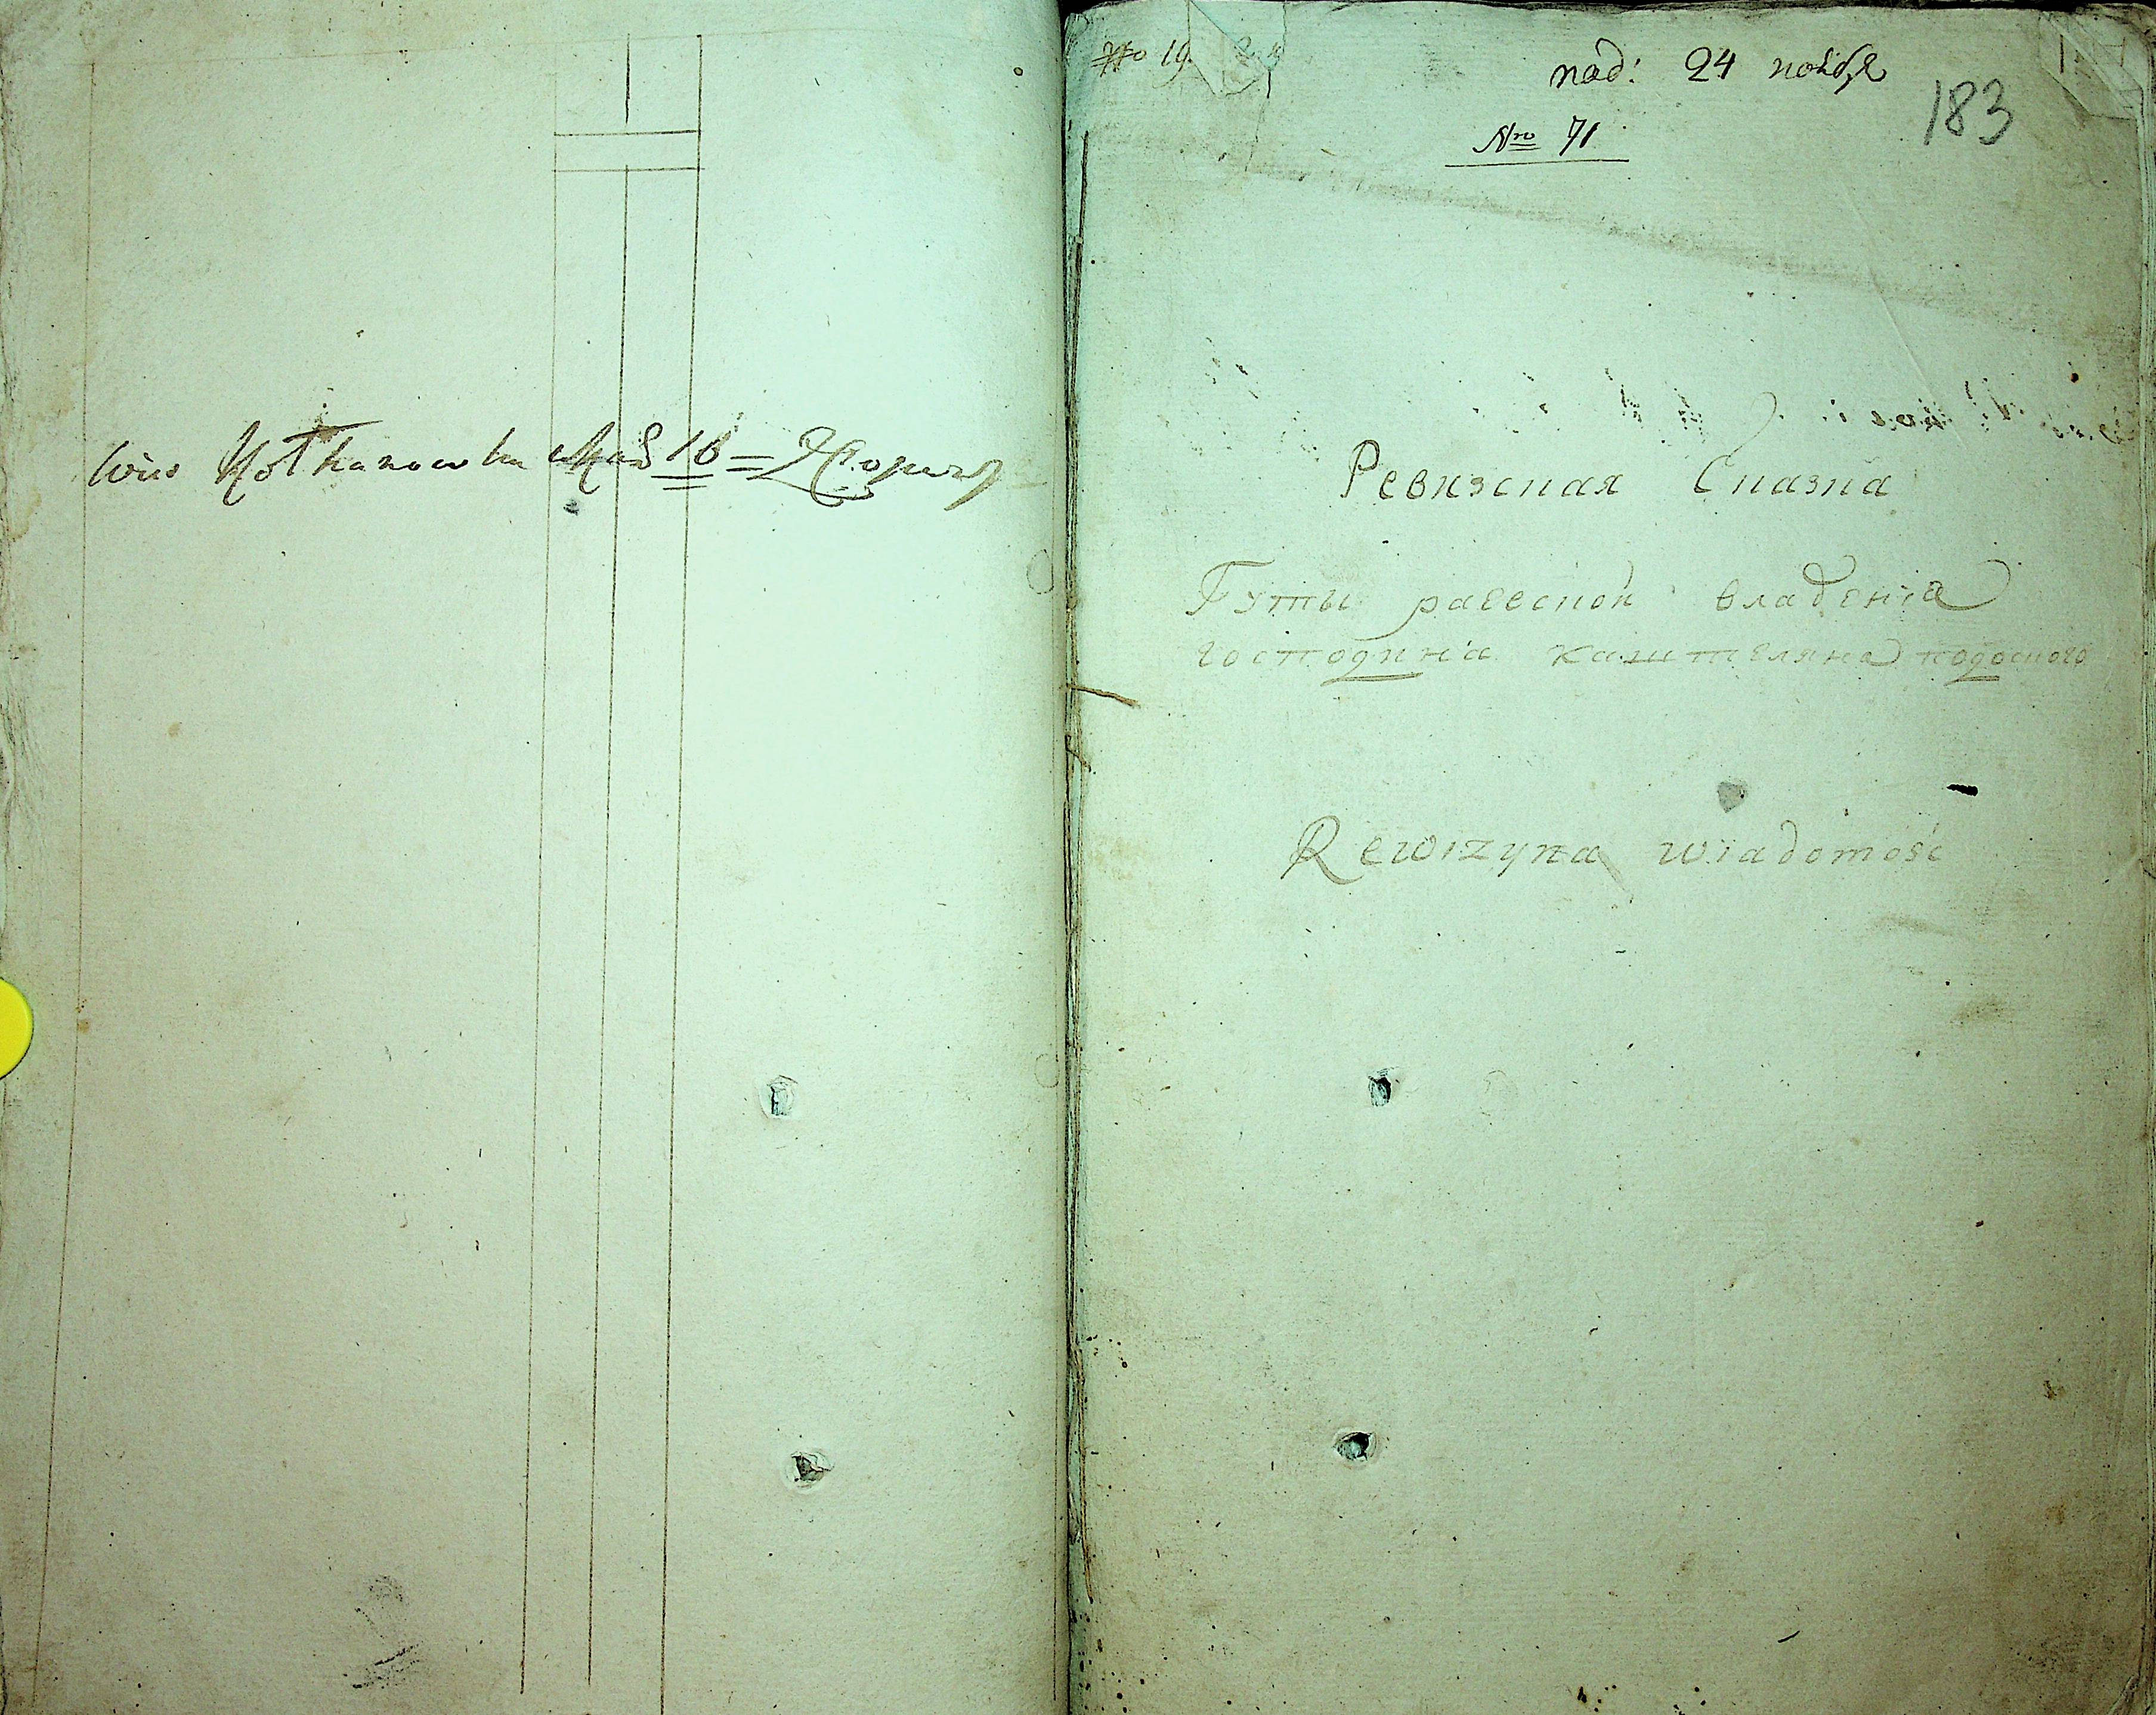 wies Kothanowka
No 19
под: 24 ноября
183
Nro 71
Ревизская Сказка
Гуты раевской владения
господина каштеляна подоского
Rewizyna wiadomość